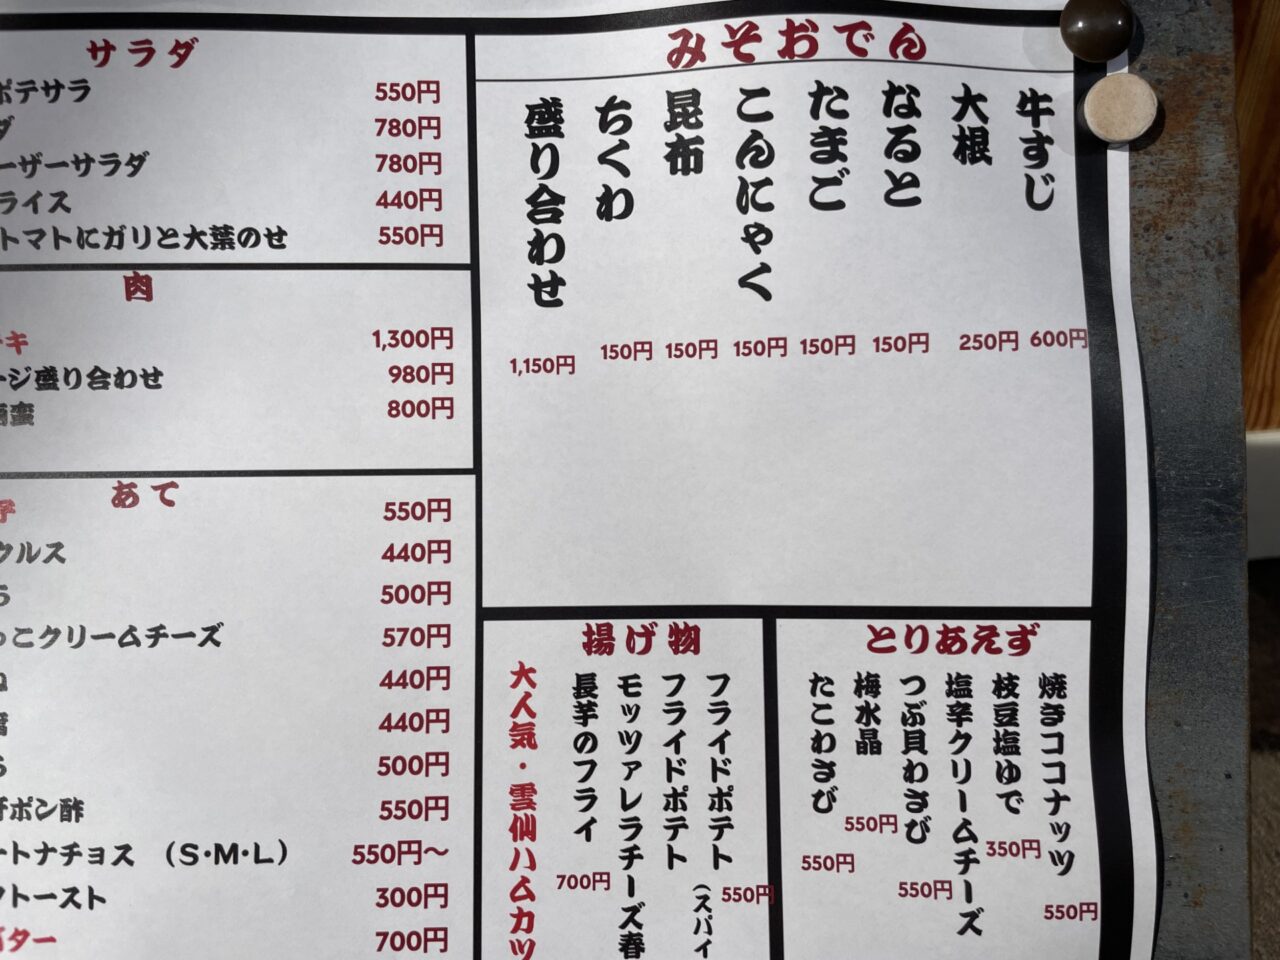 みそおでん
牛すじ
600円
大根
250円
なると
150円
たまご
150円
こんにゃく
150円
昆布
150円
ちくわ
150円
盛り合わせ
1,150円
サラダ
ポテサラ 550円
ダ 780円
ーザーサラダ 780円
ライス 440円
トマトにガリと大葉のせ 550円
肉
ーキ 1,300円
ージ盛り合わせ 980円
蛮 800円
あて
550円
クルス 440円
ら 500円
っこクリームチーズ 570円
440円
440円
ら 500円
肝ポン酢 550円
ートナチョス (S・M・L) 550円～
トースト 300円
バター 700円
とりあえず
焼きココナッツ
550円
枝豆塩ゆで
350円
塩辛クリームチーズ
550円
つぶ貝わさび
梅水晶
550円
たこわさび
550円
揚げ物
フライドポテト
550円
フライドポテト (スパイ
モッツァレラチーズ春
長芋のフライ
700円
大人気・雲仙ハムカツ